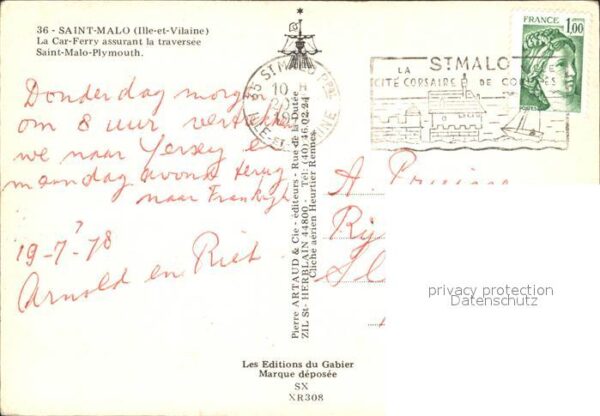 36 - SAINT-MALO (Ille-et-Vilaine)
La Car-Ferry assurant la traversée
Saint-Malo-Plymouth.
Donderdag morgen
om 8 uur vertrekken
we naar Yersey en
maandag avond terug
naar Frankrijk
19-7-78
Arnold en Riet
Pierre ARTAUD & Cie - éditeurs - Rue de la Dutée
ZIL St-HERBLAIN 44800 - Tél: (40) 46.02.24
Cliché aérien Heurtier Rennes.
Les Editions du Gabier
Marque déposée
SX
XR308
35 ST MALO PPAL
10 H
20-7
ILLE-ET-VILAINE
LA
ST MALO
CITÉ CORSAIRE DE
FRANCE
1,00
POSTES
A.
Rij
Sl
privacy protection
Datenschutz